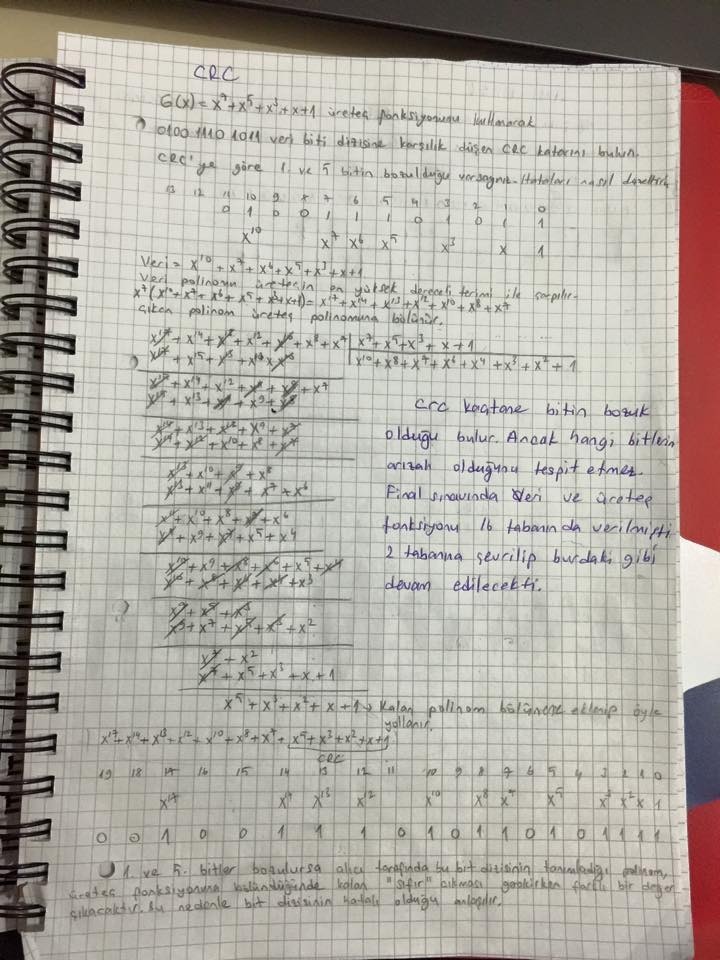 CRC
G(x) = x⁷ + x⁵ + x³ + x + 1 üreteç fonksiyonunu kullanarak
0100 1110 1011 veri biti dizisine karşılık düşen CRC katarını bulun.
CRC'ye göre 1. ve 5 bitin bozulduğu varsayınız. Hataları nasıl
13 12 11 10 9 8 7 6 5 4 3 2 1 0
0 1 0 0 1 1 1 0 1 0 1 1
x¹⁰ x⁷ x⁶ x⁵ x³ x 1
Veri = x¹⁰ + x⁷ + x⁶ + x⁵ + x³ + x + 1
Veri polinomu üretecin en yüksek dereceli terimi ile çarpılır.
x⁷(x¹⁰ + x⁷ + x⁶ + x⁵ + x³ + x + 1) = x¹⁷ + x¹⁴ + x¹³ + x¹² + x¹⁰ + x⁸ + x⁷
Çıkan polinom üreteç polinomuna bölünür.
x¹⁷ + x¹⁴ + x¹³ + x¹² + x¹⁰ + x⁸ + x⁷ | x⁷ + x⁵ + x³ + x + 1
x¹⁷ + x¹⁵ + x¹³ + x¹¹ + x¹⁰ | x¹⁰ + x⁸ + x⁷ + x⁶ + x⁴ + x³ + x² + 1
x¹⁵ + x¹⁴ + x¹² + x¹¹ + x⁸ + x⁷
x¹⁵ + x¹³ + x¹¹ + x⁹ + x⁸
x¹⁴ + x¹³ + x¹² + x⁹ + x⁷
x¹⁴ + x¹² + x¹⁰ + x⁸ + x⁷
x¹³ + x¹⁰ + x⁹ + x⁸
x¹³ + x¹¹ + x⁹ + x⁷ + x⁶
x¹¹ + x¹⁰ + x⁸ + x⁷ + x⁶
x¹¹ + x⁹ + x⁷ + x⁵ + x⁴
x¹⁰ + x⁹ + x⁸ + x⁶ + x⁵ + x⁴
x¹⁰ + x⁸ + x⁶ + x⁴ + x³
x⁹ + x⁵ + x³
x⁹ + x⁷ + x⁵ + x³ + x²
x⁷ + x²
x⁷ + x⁵ + x³ + x + 1
x⁵ + x³ + x² + x + 1 → Kalan polinom bölünene eklenip öyle
yollanır.
Crc kaçtane bitin bozuk
olduğu bulur. Ancak hangi bitlerin
arızalı olduğunu tespit etmez.
Final sınavında Veri ve üreteç
fonksiyonu 16 tabanında verilmişti
2 tabanına çevrilip burdaki gibi
devam edilecekti.
x¹⁷ + x¹⁴ + x¹³ + x¹² + x¹⁰ + x⁸ + x⁷ + x⁵ + x³ + x² + x + 1
CRC
19 18 17 16 15 14 13 12 11 10 9 8 7 6 5 4 3 2 1 0
x¹⁷ x¹⁴ x¹³ x¹² x¹⁰ x⁸ x⁷ x⁵ x³ x² x 1
0 0 1 0 0 1 1 1 0 1 0 1 1 0 1 0 1 1 1 1
1. ve 5. bitler bozulursa alıcı tarafında bu bit dizisinin tanımladığı polinom,
üreteç fonksiyonuna bölündüğünde kalan "sıfır" çıkması gerekirken farklı bir değer
çıkacaktır. Bu nedenle bit dizisinin hatalı olduğu anlaşılır.